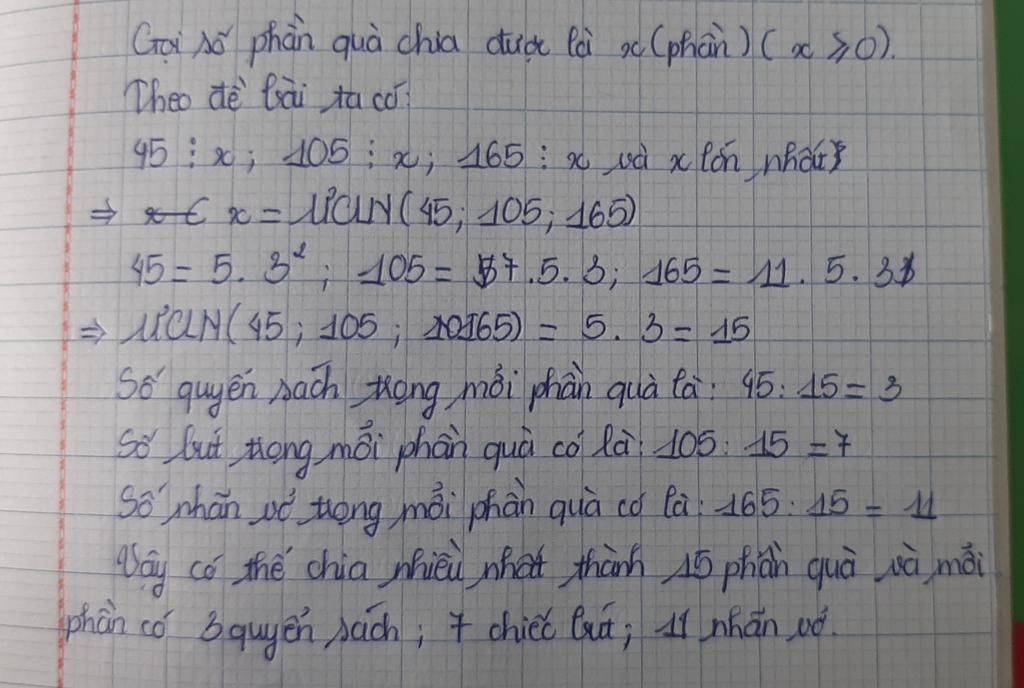 Gọi số phần quà chia được là x (phần) ( x ⩾ 0).
Theo đề bài ta có:
45 ⋮ x; 105 ⋮ x; 165 ⋮ x và x lớn nhất
⇒ x = ƯCLN(45; 105; 165)
45 = 5. 3²; 105 = 7.5.3; 165 = 11. 5. 3
⇒ ƯCLN(45; 105; 165) = 5. 3 = 15
Số quyển sách trong mỗi phần quà là: 45: 15 = 3
Số bút trong mỗi phần quà có là: 105: 15 = 7
Số nhãn vở trong mỗi phần quà có là: 165: 15 = 11
Vậy có thể chia nhiều nhất thành 15 phần quà và mỗi
phần có 3 quyển sách; 7 chiếc bút; 11 nhãn vở.